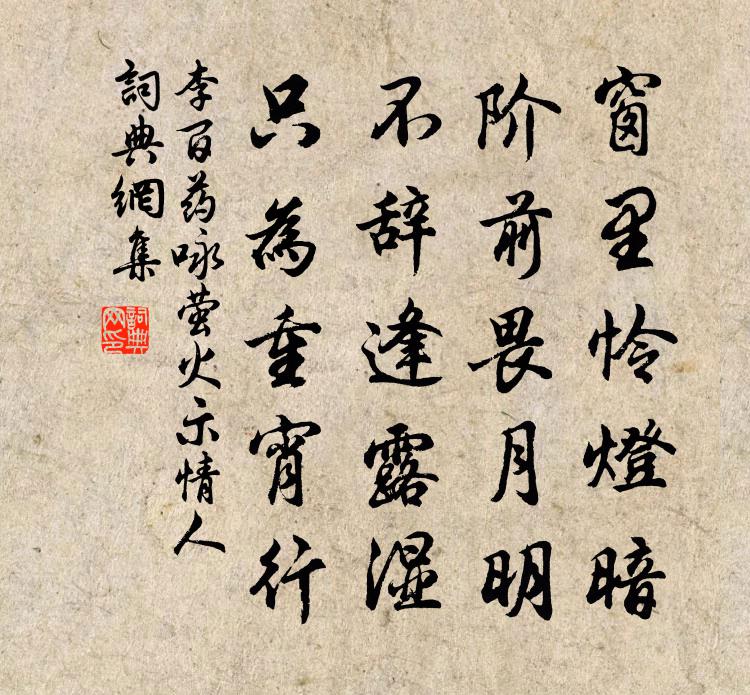 窗里怜燈暗
阶前畏月明
不辞逢露湿
只為重宵行
李百药咏萤火示情人
詞典網集
詞典
网印